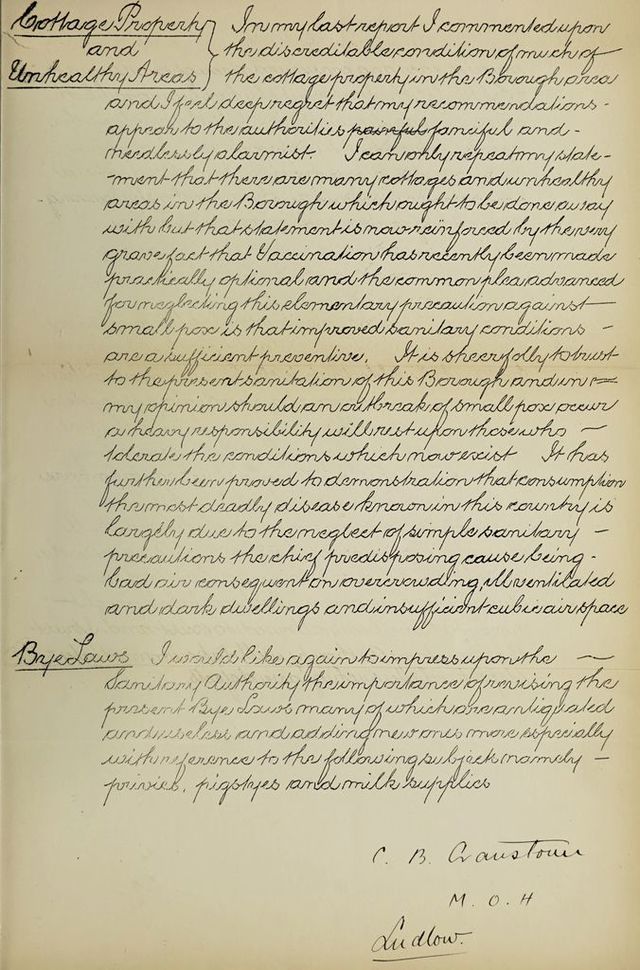 Cottage Property } In my last report I commented upon
and the discreditable condition of much of
Unhealthy Areas the cottage property in the Borough area
and I feel deep regret that my recommendations -
appear to the authorities painful fanciful and -
needlessly alarmist. I can only repeat my state-
-ment that there are many cottages and unhealthy
areas in the Borough which ought to be done away
with but that statement is now reinforced by the very
grave fact that Vaccination has recently been made
practically optional and the common plea advanced
for neglecting this elementary precaution against —
small pox is that improved sanitary conditions —
are a sufficient preventive. It is sheer folly to trust
to the present sanitation of this Borough and in —
my opinion should an outbreak of small pox occur
a heavy responsibility will rest upon those who —
tolerate the conditions which now exist It has
further been proved to demonstration that consumption
the most deadly disease known in this country is
largely due to the neglect of simple sanitary —
precautions the chief predisposing cause being -
bad air consequent on overcrowding, ill ventilated
and dark dwellings and insufficient cubic air space
Bye Laws I would like again to impress upon the —
Sanitary Authority the importance of revising the
present Bye Laws many of which are antiquated
and useless and adding new ones more especially
with reference to the following subjects namely —
privies, pigstyes and milk supplies
C. B. Cranstoun
M. O. H
Ludlow.